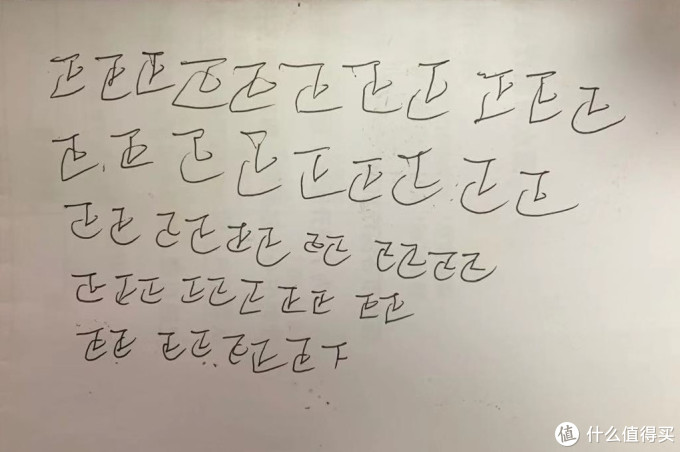 正正正正正正正正正正正
正正正正正正正正正
正正正正正正正正正正正正
正正正正正正正正正正
正正正正正正正下
值 什么值得买